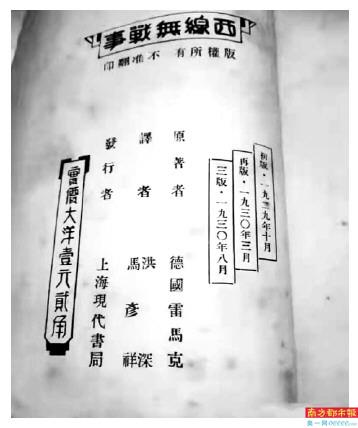 西線無戰事
版權所有 不准翻印
初版·一九二九年十月
再版·一九三〇年三月
三版·一九三〇年八月
原著者 德國雷馬克
譯者 洪深 馬彥祥
發行者 上海現代書局
實價大洋壹元貳角
南方都市报
奥一网oeeee.com